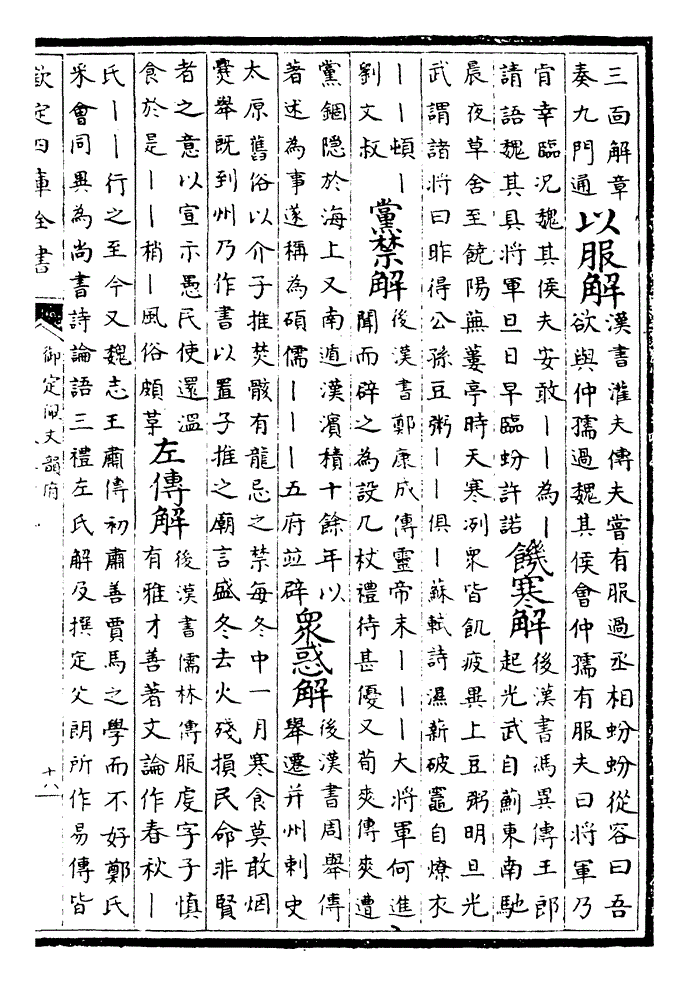 三面解章
奏九門通
以服解
漢書灌夫傳夫嘗有服過丞相蚡蚡從容曰吾
欲與仲孺過魏其侯會仲孺有服夫曰將軍乃
肯幸臨況魏其侯夫安敢丨丨為丨
請語魏其具將軍旦日早臨蚡許諾
饑寒解
後漢書馮異傳王郎
起光武自薊東南馳
晨夜草舍至饒陽蕪蔞亭時天寒冽眾皆飢疲異上豆粥明旦光
武謂諸將曰昨得公孫豆粥丨丨俱丨蘇軾詩濕薪破竈自燎衣
丨丨頓丨
劉文叔
黨禁解
後漢書鄭康成傳靈帝末丨丨丨大將軍何進
聞而辟之為設几杖禮待甚優又荀爽傳爽遭
黨錮隱於海上又南遁漢濱積十餘年以
著述為事遂稱為碩儒丨丨丨五府竝辟
眾惑解
後漢書周舉傳
舉遷并州刺史
太原舊俗以介子推焚骸有龍忌之禁每冬中一月寒食莫敢烟
爨舉既到州乃作書以置子推之廟言盛冬去火殘損民命非賢
者之意以宣示愚民使還溫
食於是丨丨稍丨風俗頗革
左傳解
後漢書儒林傳服虔字子慎
有雅才善著文論作春秋丨
氏丨丨行之至今又魏志王肅傳初肅善賈馬之學而不好鄭氏
采會同異為尚書詩論語三禮左氏解及撰定父朗所作易傳皆
欽定四庫全書
御定佩文韻府
十八